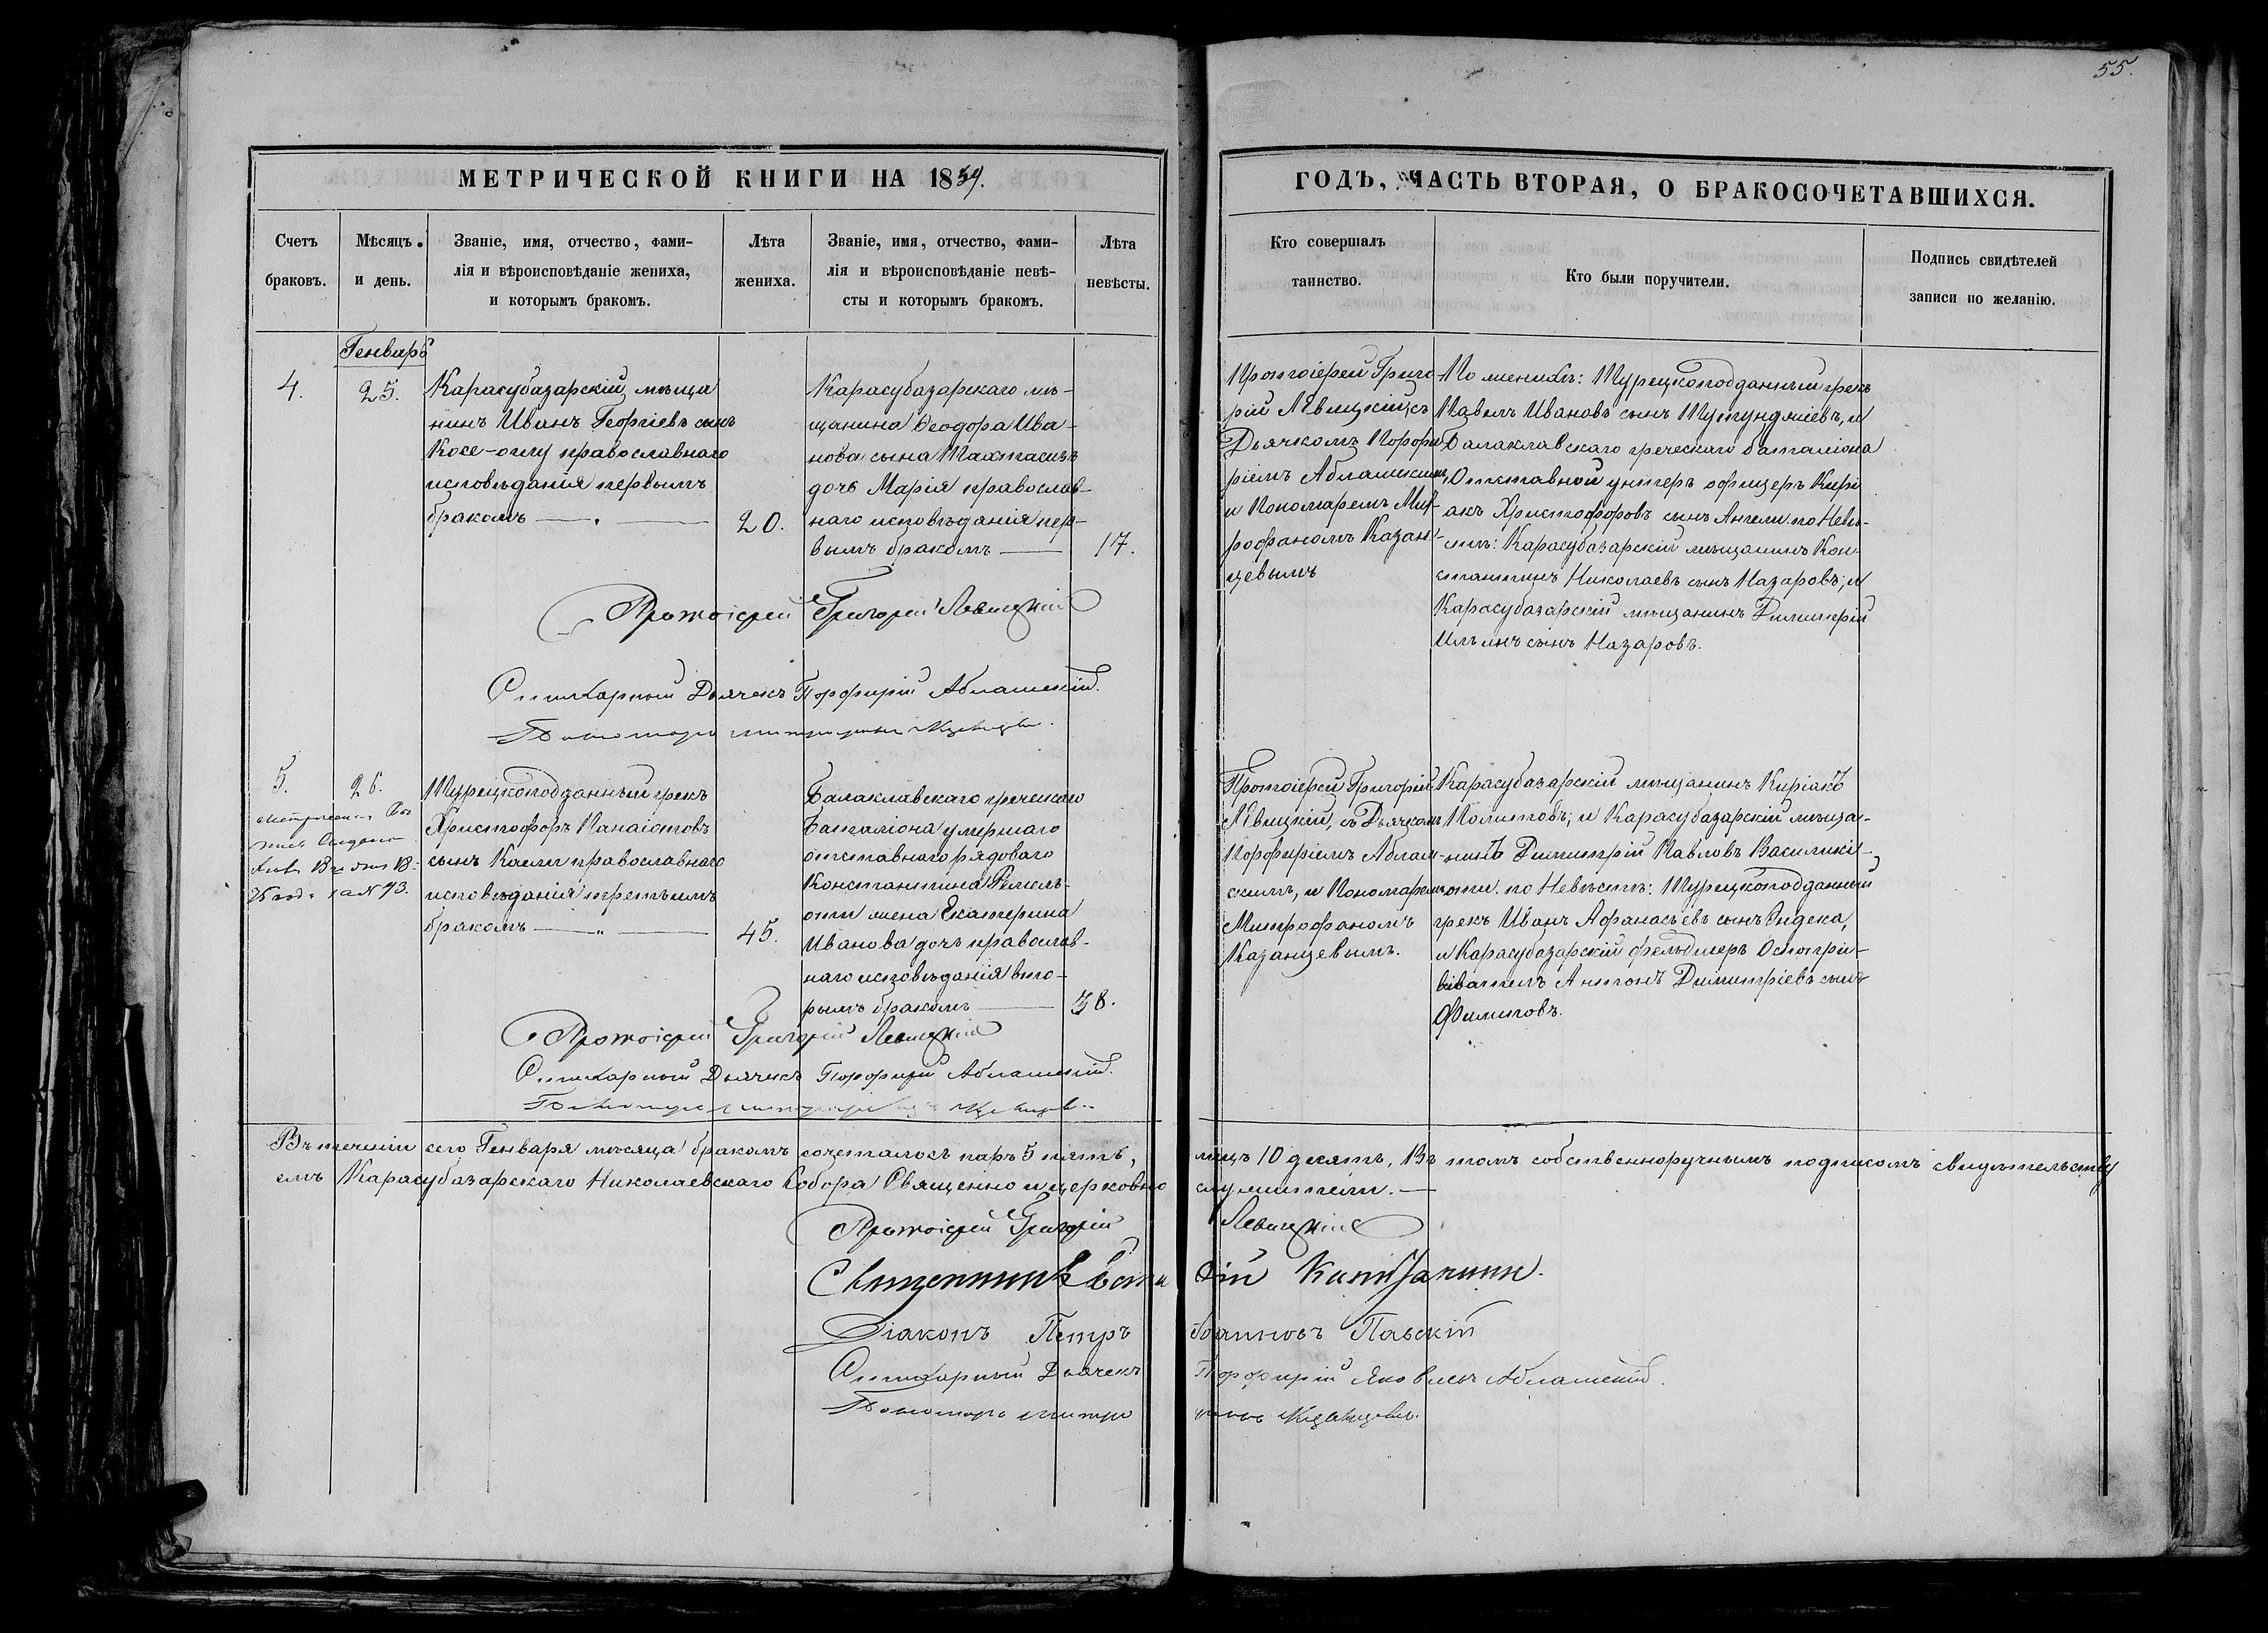 55.
МЕТРИЧЕСКОЙ КНИГИ НА 1859.
Счетъ
браковъ.
Мѣсяцъ
и день.
Званіе, имя, отчество, фами-
лія и вѣроисповѣданіе жениха,
и которымъ бракомъ.
Лѣта
жениха.
Званіе, имя, отчество, фами-
лія и вѣроисповѣданіе невѣ-
сты и которымъ бракомъ.
Лѣта
невѣсты.
ГОДЪ, ЧАСТЬ ВТОРАЯ, О БРАКОСОЧЕТАВШИХСЯ.
Кто совершалъ
таинство.
Кто были поручители.
Подпись свидѣтелей
записи по желанію.
Генварь
4.
25.
Карасубазарскій мѣща
нинъ Иванъ Георгіевъ сынъ
Косе-оглу православнаго
исповѣданія первымъ
бракомъ
20.
Карасубазарскаго мѣ-
щанина Ѳеодора Ива-
нова сына
дочь Марія православ-
наго исповѣданія пер-
вымъ бракомъ
17.
Протоіерей Григо-
рій Левицкій съ
Дьячкомъ Порфи
ріемъ Абламскимъ,
и Пономаремъ Мит-
рофаномъ Казан-
цевымъ
По женихѣ: Турецкоподданный грекъ
Павелъ Ивановъ сынъ Тутунджіевъ, и
Балаклавскаго греческаго баталіона
Отставной унтеръ офицеръ Кирі
акъ Христофоровъ сынъ Ангели по Невѣ-
стѣ: Карасубазарскій мѣщанинъ Кон-
стантинъ Николаевъ сынъ Назаровъ; и
Карасубазарскій мѣщанинъ Димитрій
Ильинъ сынъ Назаровъ.
Протоіерей Григорій Левицкій
Стихарный Дьячекъ Порфирій Абламскій.
Пономарь Митрофанъ Казанцевъ.
5.
26.
Турецкоподданный грекъ
Христофоръ Панаіотовъ
сынъ Кали православнаго
исповѣданія третьимъ
бракомъ
45.
Балаклавскаго греческаго
Баталіона умершаго
отставнаго рядоваго
Константина
жена Екатерина
Иванова дочь православ-
наго исповѣданія вто-
рымъ бракомъ
38.
Протоіерей Григорій
Левицкій, съ Дьячкомъ
Порфиріемъ Аблам-
скимъ, и Пономаремъ
Митрофаномъ
Казанцевымъ.
Карасубазарскій мѣщанинъ Киріакъ
Политовъ; и Карасубазарскій мѣща-
нинъ Димитрій Павловъ Василикі-
оти. по Невѣстѣ: Турецкоподданный
грекъ Иванъ Афанасьевъ сынъ Зидека,
и Карасубазарскій фельдшеръ Оспопри-
виватель Антонъ Димитріевъ сынъ
Филиповъ.
Протоіерей Григорій Левицкій
Стихарный Дьячекъ Порфирій Абламскій.
Пономарь Митрофанъ Казанцевъ.
Въ теченіи сего Генваря мѣсяца бракомъ сочеталось паръ 5 пять, лицъ 10 десять. Въ томъ собственноручнымъ подписомъ свидѣтельству
емъ Карасубазарскаго Николаевскаго Собора Священно и церковно служители.
Протоіерей Григорій Левицкій
Священникъ
Діаконъ Петръ Павскій
Стихарный Дьячекъ Порфирій Яковлевъ Абламскій.
Пономарь Митрофанъ Казанцевъ.